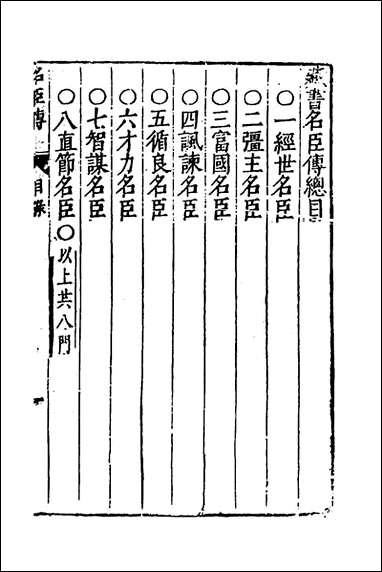 藏書名臣傳總目
〇一經世名臣
〇二彊主名臣
〇三富國名臣
〇四諷諫名臣
〇五循良名臣
〇六才力名臣
〇七智謀名臣
〇八直節名臣〇以上共八門
名臣傳 目錄 一